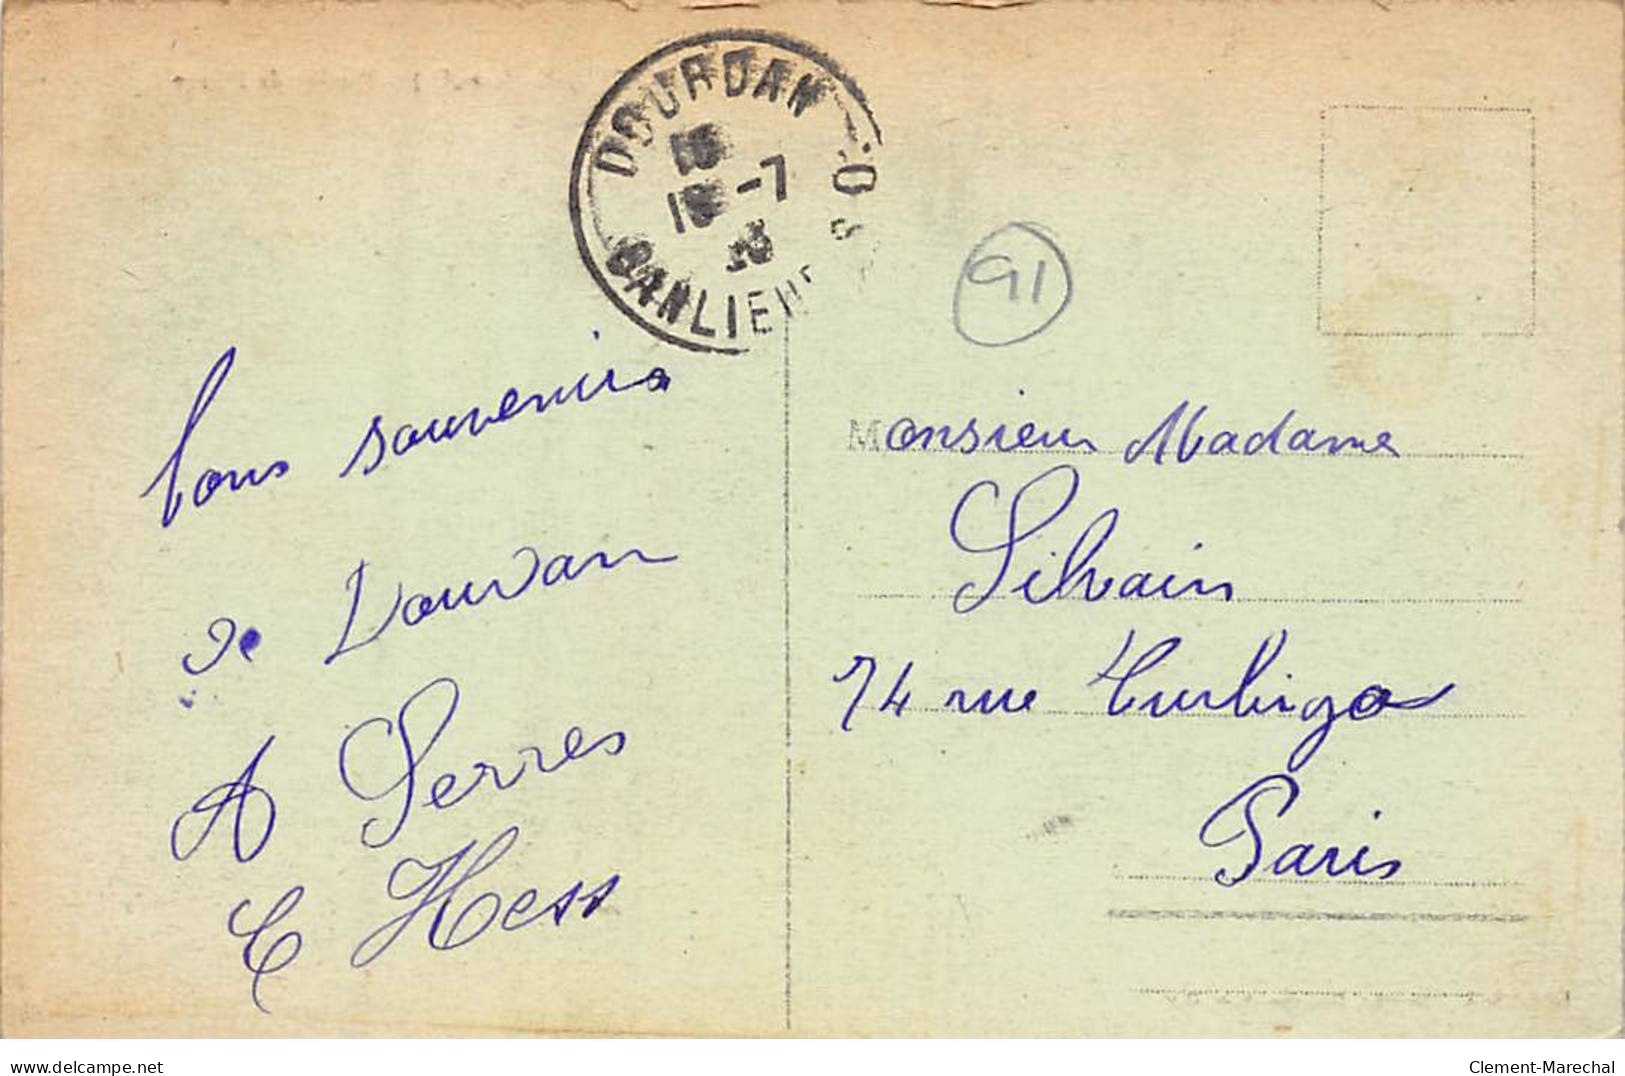 DOURDAN
-7
BANLIEUE
S. & O.
91
bons souvenirs
de Dourdan
A Serres
C Hess
Monsieur Madame
Silvain
74 rue Turbigo
Paris
delcampe.net
Clement-Marechal